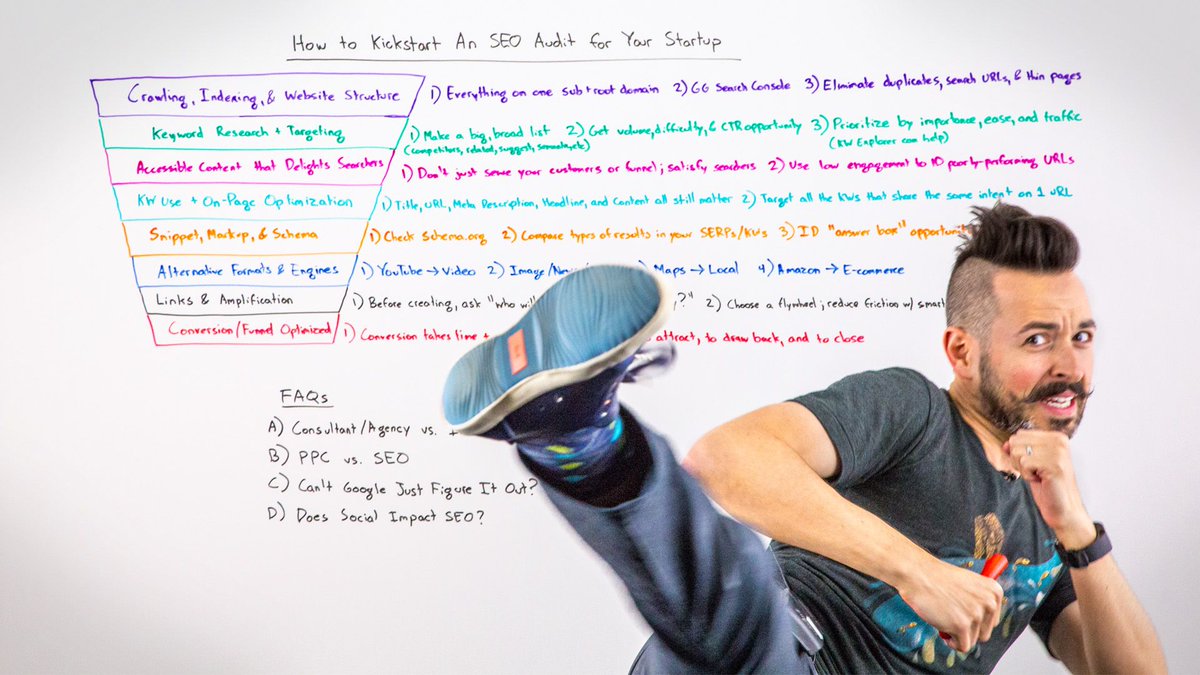 How to Kickstart An SEO Audit for Your Startup
Crawling, Indexing, & Website Structure 1) Everything on one sub+root domain 2) GG Search Console 3) Eliminate duplicates, search URLs, & thin pages
Keyword Research + Targeting 1) Make a big, broad list 2) Get volume, difficulty, & CTR opportunity 3) Prioritize by importance, ease, and traffic
(competitors, related, suggest, semantic, etc) (KW Explorer can help)
Accessible Content that Delights Searchers 1) Don't just serve your customers or funnel; satisfy searchers 2) Use low engagement to ID poorly-performing URLs
KW Use + On-Page Optimization 1) Title, URL, Meta Description, Headline, and Content all still matter 2) Target all the KWs that share the same intent on 1 URL
Snippet, Markup, & Schema 1) Check Schema.org 2) Compare types of results in your SERPs/KWs 3) ID "answer box"
Alternative Formats & Engines 1) YouTube → Video 2) Image/ Maps → Local 4) Amazon → E-commerce
Links & Amplification 1) Before creating, ask "who ?" 2) Choose a flywheel; reduce friction w/
Conversion/Funnel Optimized 1) Conversion takes time + attract, to draw back, and to close
FAQs
A) Consultant/Agency vs.
B) PPC vs. SEO
C) Can't Google Just Figure It Out?
D) Does Social Impact SEO?